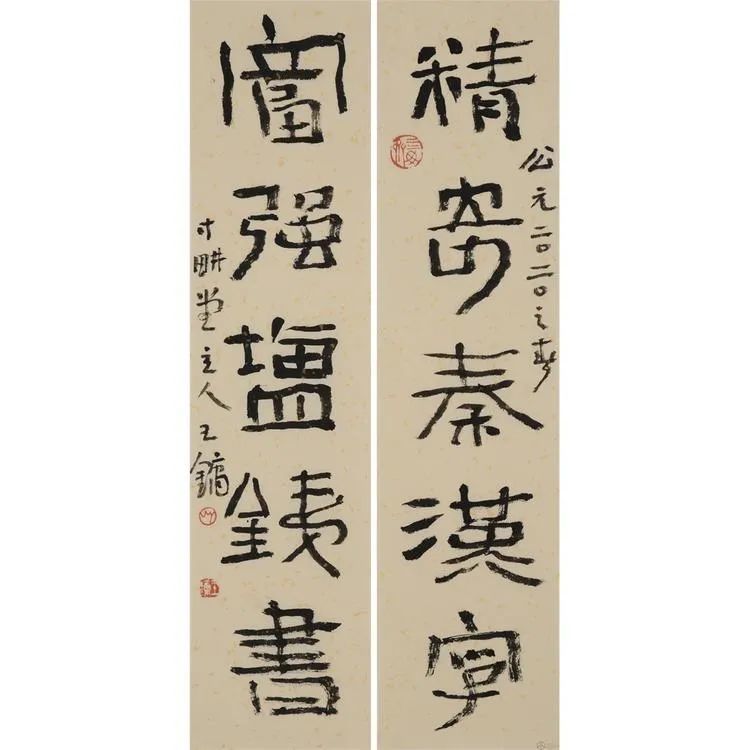 精奇秦漢字
公元二〇二〇之春
富强塩銕書
寸畊堂主人王鏞